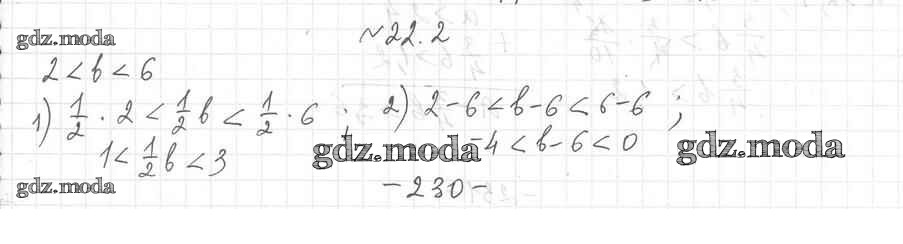 gdz.moda
№22.2
2 < b < 6
1) 1/2 · 2 < 1/2 b < 1/2 · 6 ; 2) 2-6 < b-6 < 6-6 ;
1 < 1/2 b < 3 gdz.moda -4 < b-6 < 0 gdz.moda
gdz.moda -230-